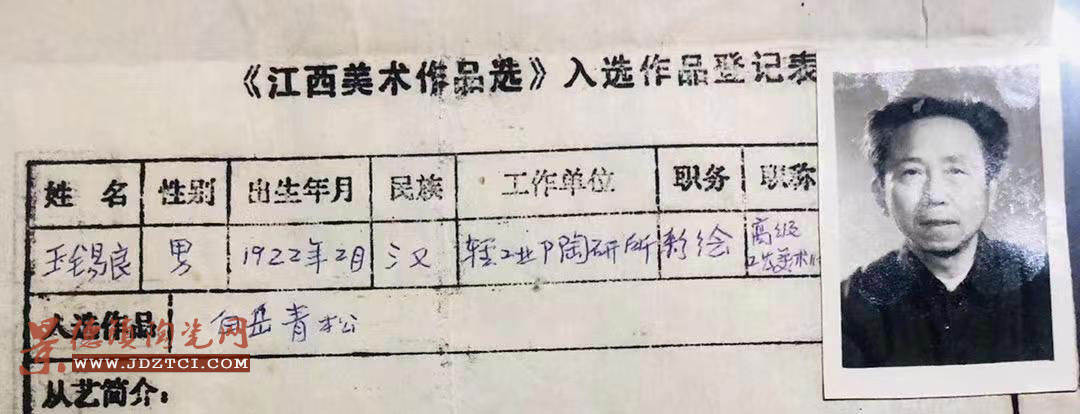 《江西美术作品选》入选作品登记表
姓名 性别 出生年月 民族 工作单位 职务 职称
王锡良 男 1922年2月 汉 轻工业部陶研所 彩绘 高级
工艺美术
入选作品 岳青松
景德镇陶瓷网
WWW.JDZTCI.COM
从艺简介: